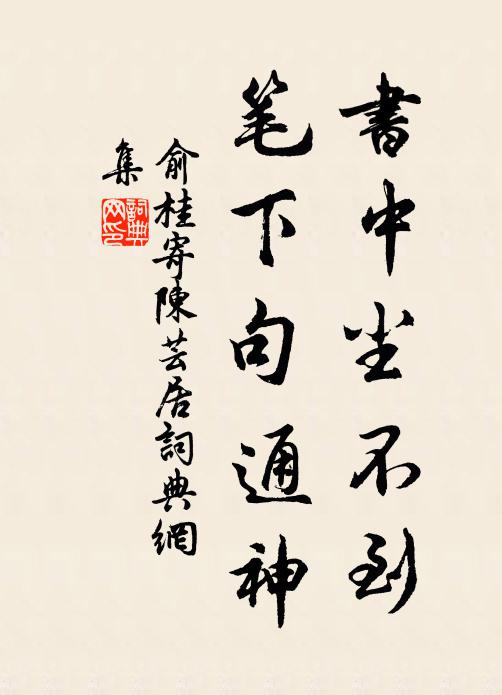 書中尘不到
笔下句通神
俞桂寄陳芸居詞典網
集
詞典
网印